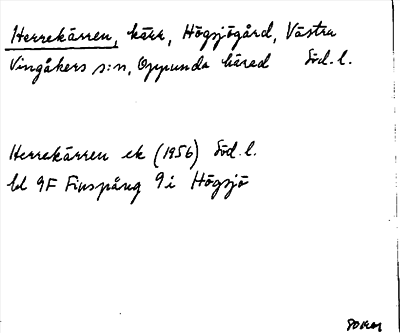 Herrekärren, kärr, Högsjögård, Västra
Vingåkers s:n, Oppunda härad Söd. l.
Herrekärren ek (1956) Söd. l.
bl 9F Finspång 9i Högsjö